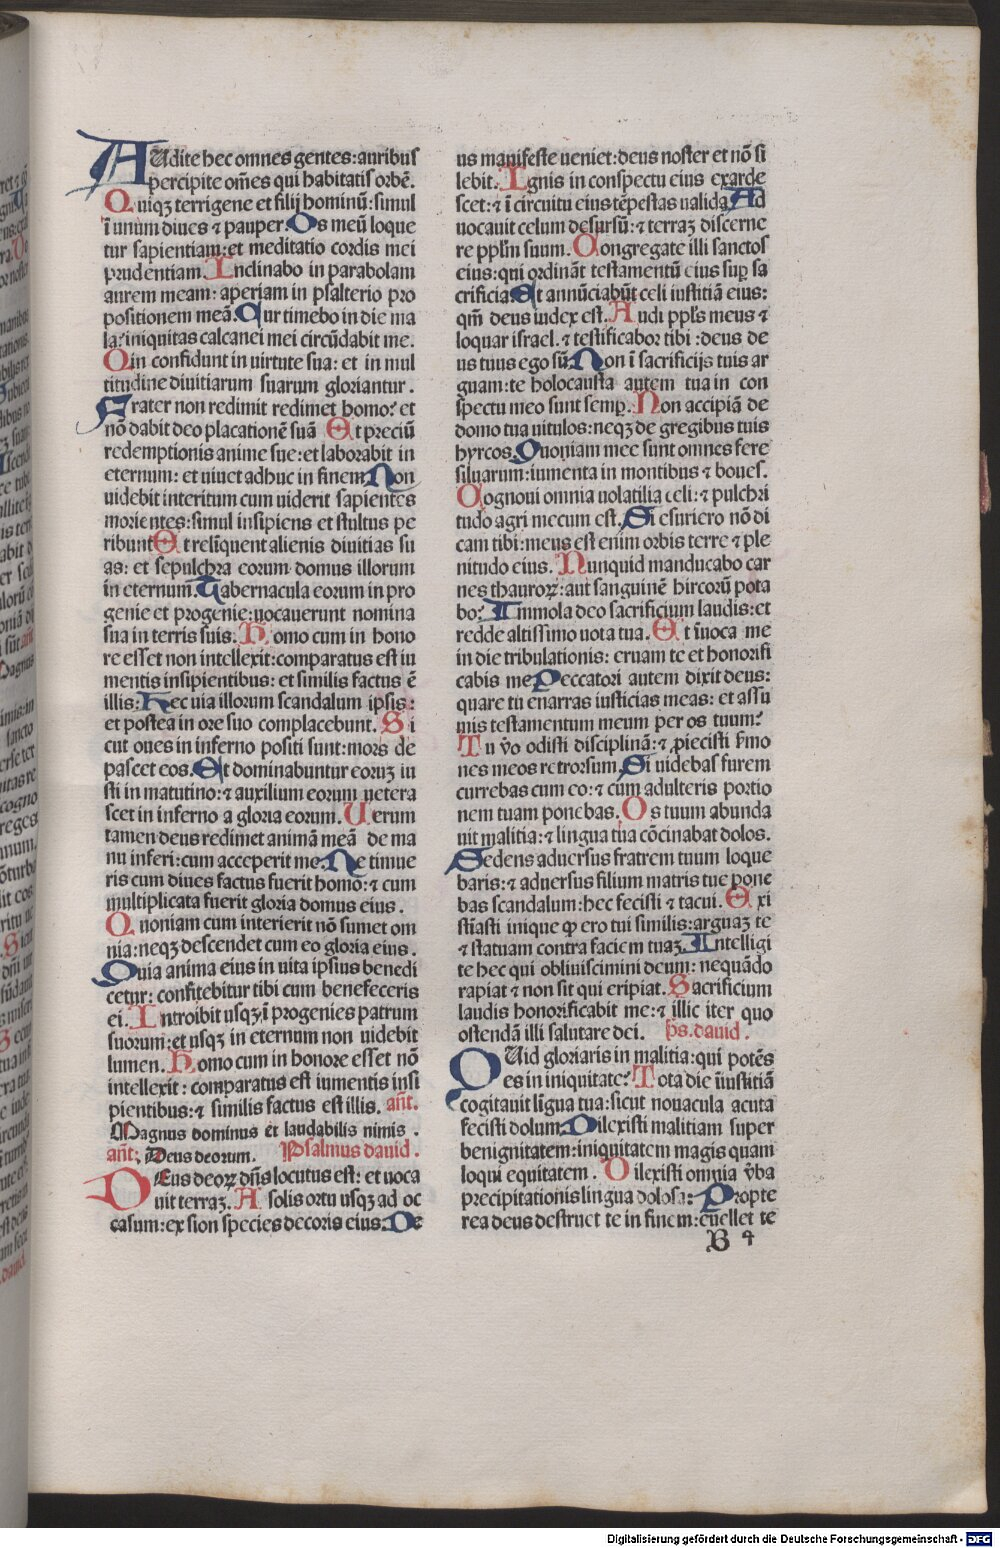 AUdite hec omnes gentes: auribus
percipite om̃es qui habitatis orbẽ.
Quiqꝫ terrigene et filij hominũ: simul
ĩ unum diues ⁊ pauper. Os meũ loque
tur sapientiam: et meditatio cordis mei
prudentiam. Inclinabo in parabolam
aurem meam: aperiam in psalterio pro
positionem meã. Cur timebo in die ma
la? iniquitas calcanei mei circũdabit me.
Qui confidunt in uirtute sua: et in mul
titudine diuitiarum suarum gloriantur.
Frater non redimit redimet homo? et
nõ dabit deo placationẽ suã Et preciũ
redemptionis anime sue: et laborabit in
eternum: et uiuet adhuc in finem Non
uidebit interitum cum uiderit sapientes
morientes: simul insipiens et stultus pe
ribunt Et reliquent alienis diuitias su
as: et sepulchra eorum domus illorum
in eternum. Tabernacula eorum in pro
genie et progenie: uocauerunt nomina
sua in terris suis. Homo cum in hono
re esset non intellexit: comparatus est iu
mentis insipientibus: et similis factus ẽ
illis: Hec uia illorum scandalum ipsis:
et postea in ore suo complacebunt. Si
cut oues in inferno positi sunt: mors de
pascet eos. Et dominabuntur eoruꝫ iu
sti in matutino: ⁊ auxilium eorum uetera
scet in inferno a gloria eorum. Uerum
tamen deus redimet animã meã de ma
nu inferi: cum acceperit me. Ne timue
ris cum diues factus fuerit homo: ⁊ cum
multiplicata fuerit gloria domus eius.
Quoniam cum interierit nõ sumet om
nia: neqꝫ descendet cum eo gloria eius.
Quia anima eius in uita ipsius benedi
cetur: confitebitur tibi cum benefeceris
ei. Introibit usqꝫ ĩ progenies patrum
suorum: et usqꝫ in eternum non uidebit
lumen. Homo cum in honore esset nõ
intellexit: comparatus est iumentis insi
pientibus: ⁊ similis factus est illis. añt.
Magnus dominus et laudabilis nimis.
añt; Deus deorum. Psalmus dauid.
DEus deorꝫ dñs locutus est: et uoca
uit terraꝫ. A solis ortu usqꝫ ad oc
casum: ex sion species decoris eius. De
us manifeste ueniet: deus noster et nõ si
lebit. Ignis in conspectu eius exarde
scet: ⁊ ĩ circuitu eius tẽpestas ualida Ad
uocauit celum desursũ: ⁊ terraꝫ discerne
re pplm̃ suum. Congregate illi sanctos
eius: qui ordinãt testamentũ eius sup̱ sa
crificia Et annũciabũt celi iustitiã eius:
qm̃ deus iudex est. Audi ppl̃s meus ⁊
loquar israel. ⁊ testificabor tibi: deus de
us tuus ego sũ Non ĩ sacrificijs tuis ar
guam: te holocausta autem tua in con
spectu meo sunt semp̱. Non accipiã de
domo tua uitulos: neqꝫ de gregibus tuis
hyrcos. Quoniam mee sunt omnes fere
siluarum: iumenta in montibus ⁊ boues.
Cognoui omnia uolatilia celi: ⁊ pulchri
tudo agri mecum est. Si esuriero nõ di
cam tibi: meus est enim orbis terre ⁊ ple
nitudo eius. Nunquid manducabo car
nes thaurorꝫ: aut sanguinẽ hircorũ pota
bo? Immola deo sacrificium laudis: et
redde altissimo uota tua. Et ĩuoca me
in die tribulationis: eruam te et honorifi
cabis me Peccatori autem dixit deus:
quare tu enarras iusticias meas: et assu
mis testamentum meum per os tuum?
Tu ṽo odisti disciplinã: ⁊ ꝓiecisti s̃mo
nes meos retrorsum. Si uidebas furem
currebas cum eo: ⁊ cum adulteris portio
nem tuam ponebas. Os tuum abunda
uit malitia: ⁊ lingua tua cõcinabat dolos.
Sedens aduersus fratrem tuum loque
baris: ⁊ aduersus filium matris tue pone
bas scandalum: hec fecisti ⁊ tacui. Exi
stĩasti inique ꝙ ero tui similis: arguaꝫ te
⁊ statuam contra faciem tuaꝫ. Intelligi
te hec qui obliuiscimini deum: nequãdo
rapiat ⁊ non sit qui eripiat. Sacrificium
laudis honorificabit me: ⁊ illic iter quo
ostendã illi salutare dei. ps̃. dauid.
QUid gloriaris in malitia: qui potẽs
es in iniquitate? Tota die ĩiustitiã
cogitauit lĩgua tua: sicut nouacula acuta
fecisti dolum Dilexisti malitiam super
benignitatem: iniquitatem magis quam
loqui equitatem. Dilexisti omnia ṽba
precipitationis lingua dolosa: Propte
rea deus destruet te in finem: euellet te
B 4
Digitalisierung gefördert durch die Deutsche Forschungsgemeinschaft - DFG